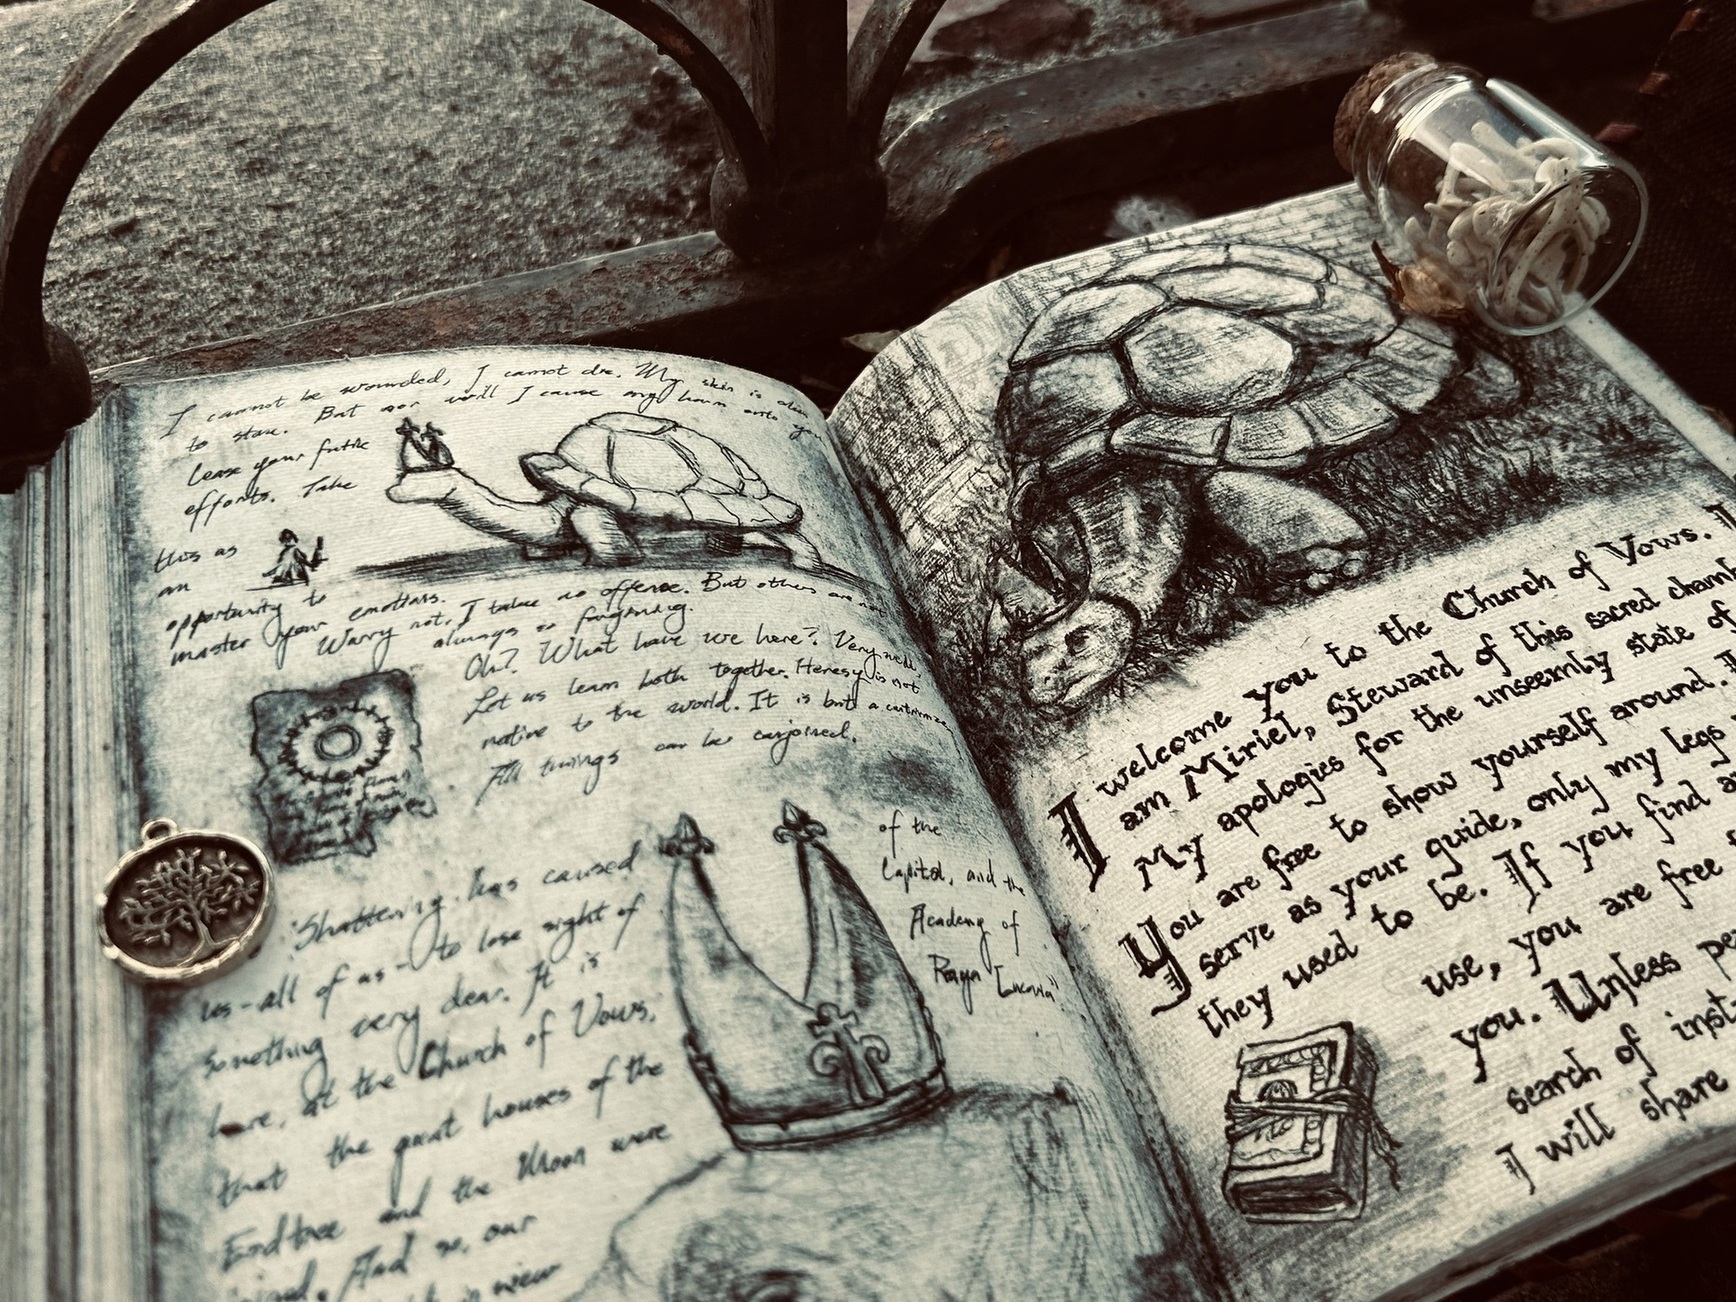 I cannot be wounded, I cannot die. My skin is akin
to stone. But nor will I cause any harm onto you
Cease your futile
efforts. Take
this as
an
opportunity to
master your emotions.
Worry not, I take no offence. But others are not
always so forgiving.
Oh? What have we here? Very well,
Let us learn both together. Heresy is not
native to the world. It is but a contrivance
All things can be conjoined.
"Shattering has caused
us - all of us - to lose sight of
something very dear. It is
here, at the Church of Vows,
that the great houses of the
Erdtree and the Moon were
And so, our
in view
of the
Capitol, and the
Academy of
Raya Lucaria"
I welcome you to the Church of Vows. I
am Miriel, Steward of this sacred chamb
My apologies for the unseemly state of
You are free to show yourself around. I
serve as your guide, only my legs
they used to be. If you find a
use, you are free
you. Unless pe
search of inst
I will share